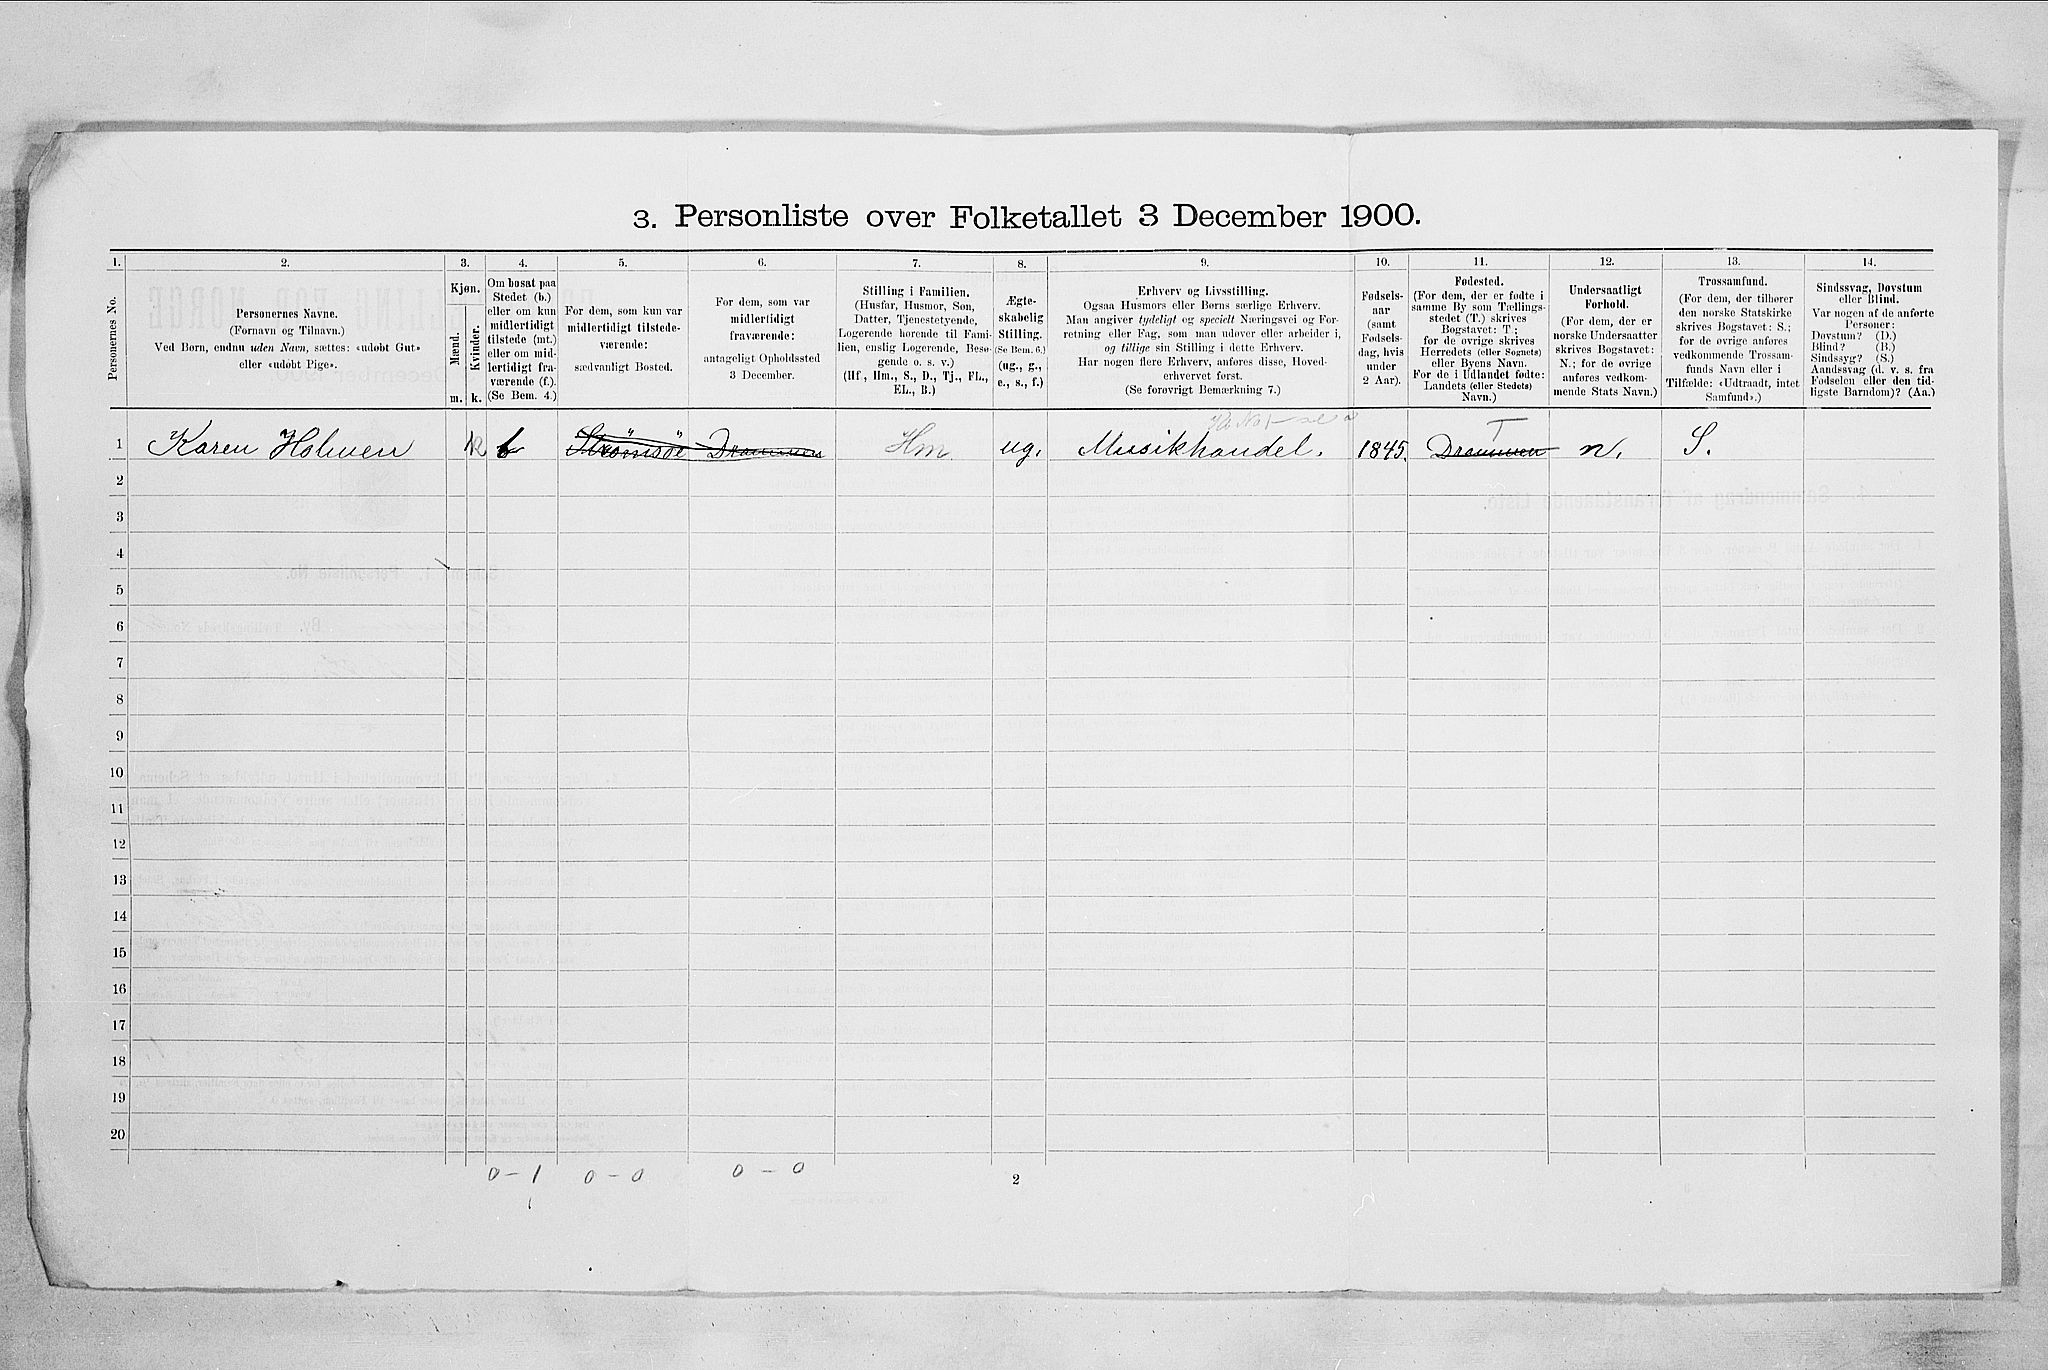 3. Personliste over Folketallet 3 December 1900.
1. 2. 3. 4. 5. 6. 7. 8. 9. 10. 11. 12. 13. 14.
Personernes No.
Personernes Navne.
(Fornavn og Tilnavn.)
Ved Børn, endnu uden Navn, sættes: «udøbt Gut»
eller «udøbt Pige».
Kjøn.
Mænd.
Kvinder.
m. k.
Om bosat paa
Stedet (b.)
eller om kun
midlertidigt
tilstede (mt.)
eller om mid-
lertidigt fra-
værende (f.).
(Se Bem. 4.)
For dem, som kun var
midlertidigt tilstede-
værende:
sædvanligt Bosted.
For dem, som var
midlertidigt
fraværende:
antageligt Opholdssted
3 December.
Stilling i Familien.
(Husfar, Husmor, Søn,
Datter, Tjenestetyende,
Logerende hørende til Fami-
lien, enslig Logerende, Besø-
gende o. s. v.)
(Hf., Hm., S., D., Tj., FL.,
EL., B.)
Ægte-
skabelig
Stilling.
(Se Bem. 6.)
(ug., g.,
e., s., f.)
Erhverv og Livsstilling.
Ogsaa Husmors eller Børns særlige Erhverv.
Man angiver tydeligt og specielt Næringsvei og For-
retning eller Fag, som man udøver eller arbeider i,
og tillige sin Stilling i dette Erhverv.
Har nogen flere Erhverv, anføres disse, Hoved-
erhvervet først.
(Se forøvrigt Bemærkning 7.)
Fødsels-
aar
(samt
Fødsels-
dag, hvis
under
2 Aar).
Fødested.
(For dem, der er fødte i
samme By som Tællings-
stedet (T.) skrives
Bogstavet: T;
for de øvrige skrives
Herredets (eller Sognets)
eller Byens Navn.
For de i Udlandet fødte:
Landets (eller Stedets)
Navn.)
Undersaatligt
Forhold.
(For dem, der er
norske Undersaatter
skrives Bogstavet:
N.; for de øvrige
anføres vedkom-
mende Stats Navn.)
Trossamfund.
(For dem, der tilhører
den norske Statskirke
skrives Bogstavet: S.;
for de øvrige anføres
vedkommende Trossam-
funds Navn eller i
Tilfælde: «Udtraadt, intet
Samfund».)
Sindssvag, Døvstum
eller Blind.
Var nogen af de anførte
Personer:
Døvstum? (D.)
Blind? (B.)
Sindssyg? (S.)
Aandssvag (d. v. s. fra
Fødselen eller den tid-
ligste Barndom)? (Aa.)
1 Karen Holmen k b Strömsöe Drammen Hm ug. Musikhandel. 1845. Drammen T n. S.
2
3
4
5
6
7
8
9
10
11
12
13
14
15
16
17
18
19
20
0 – 1 0 – 0 0 – 0
2